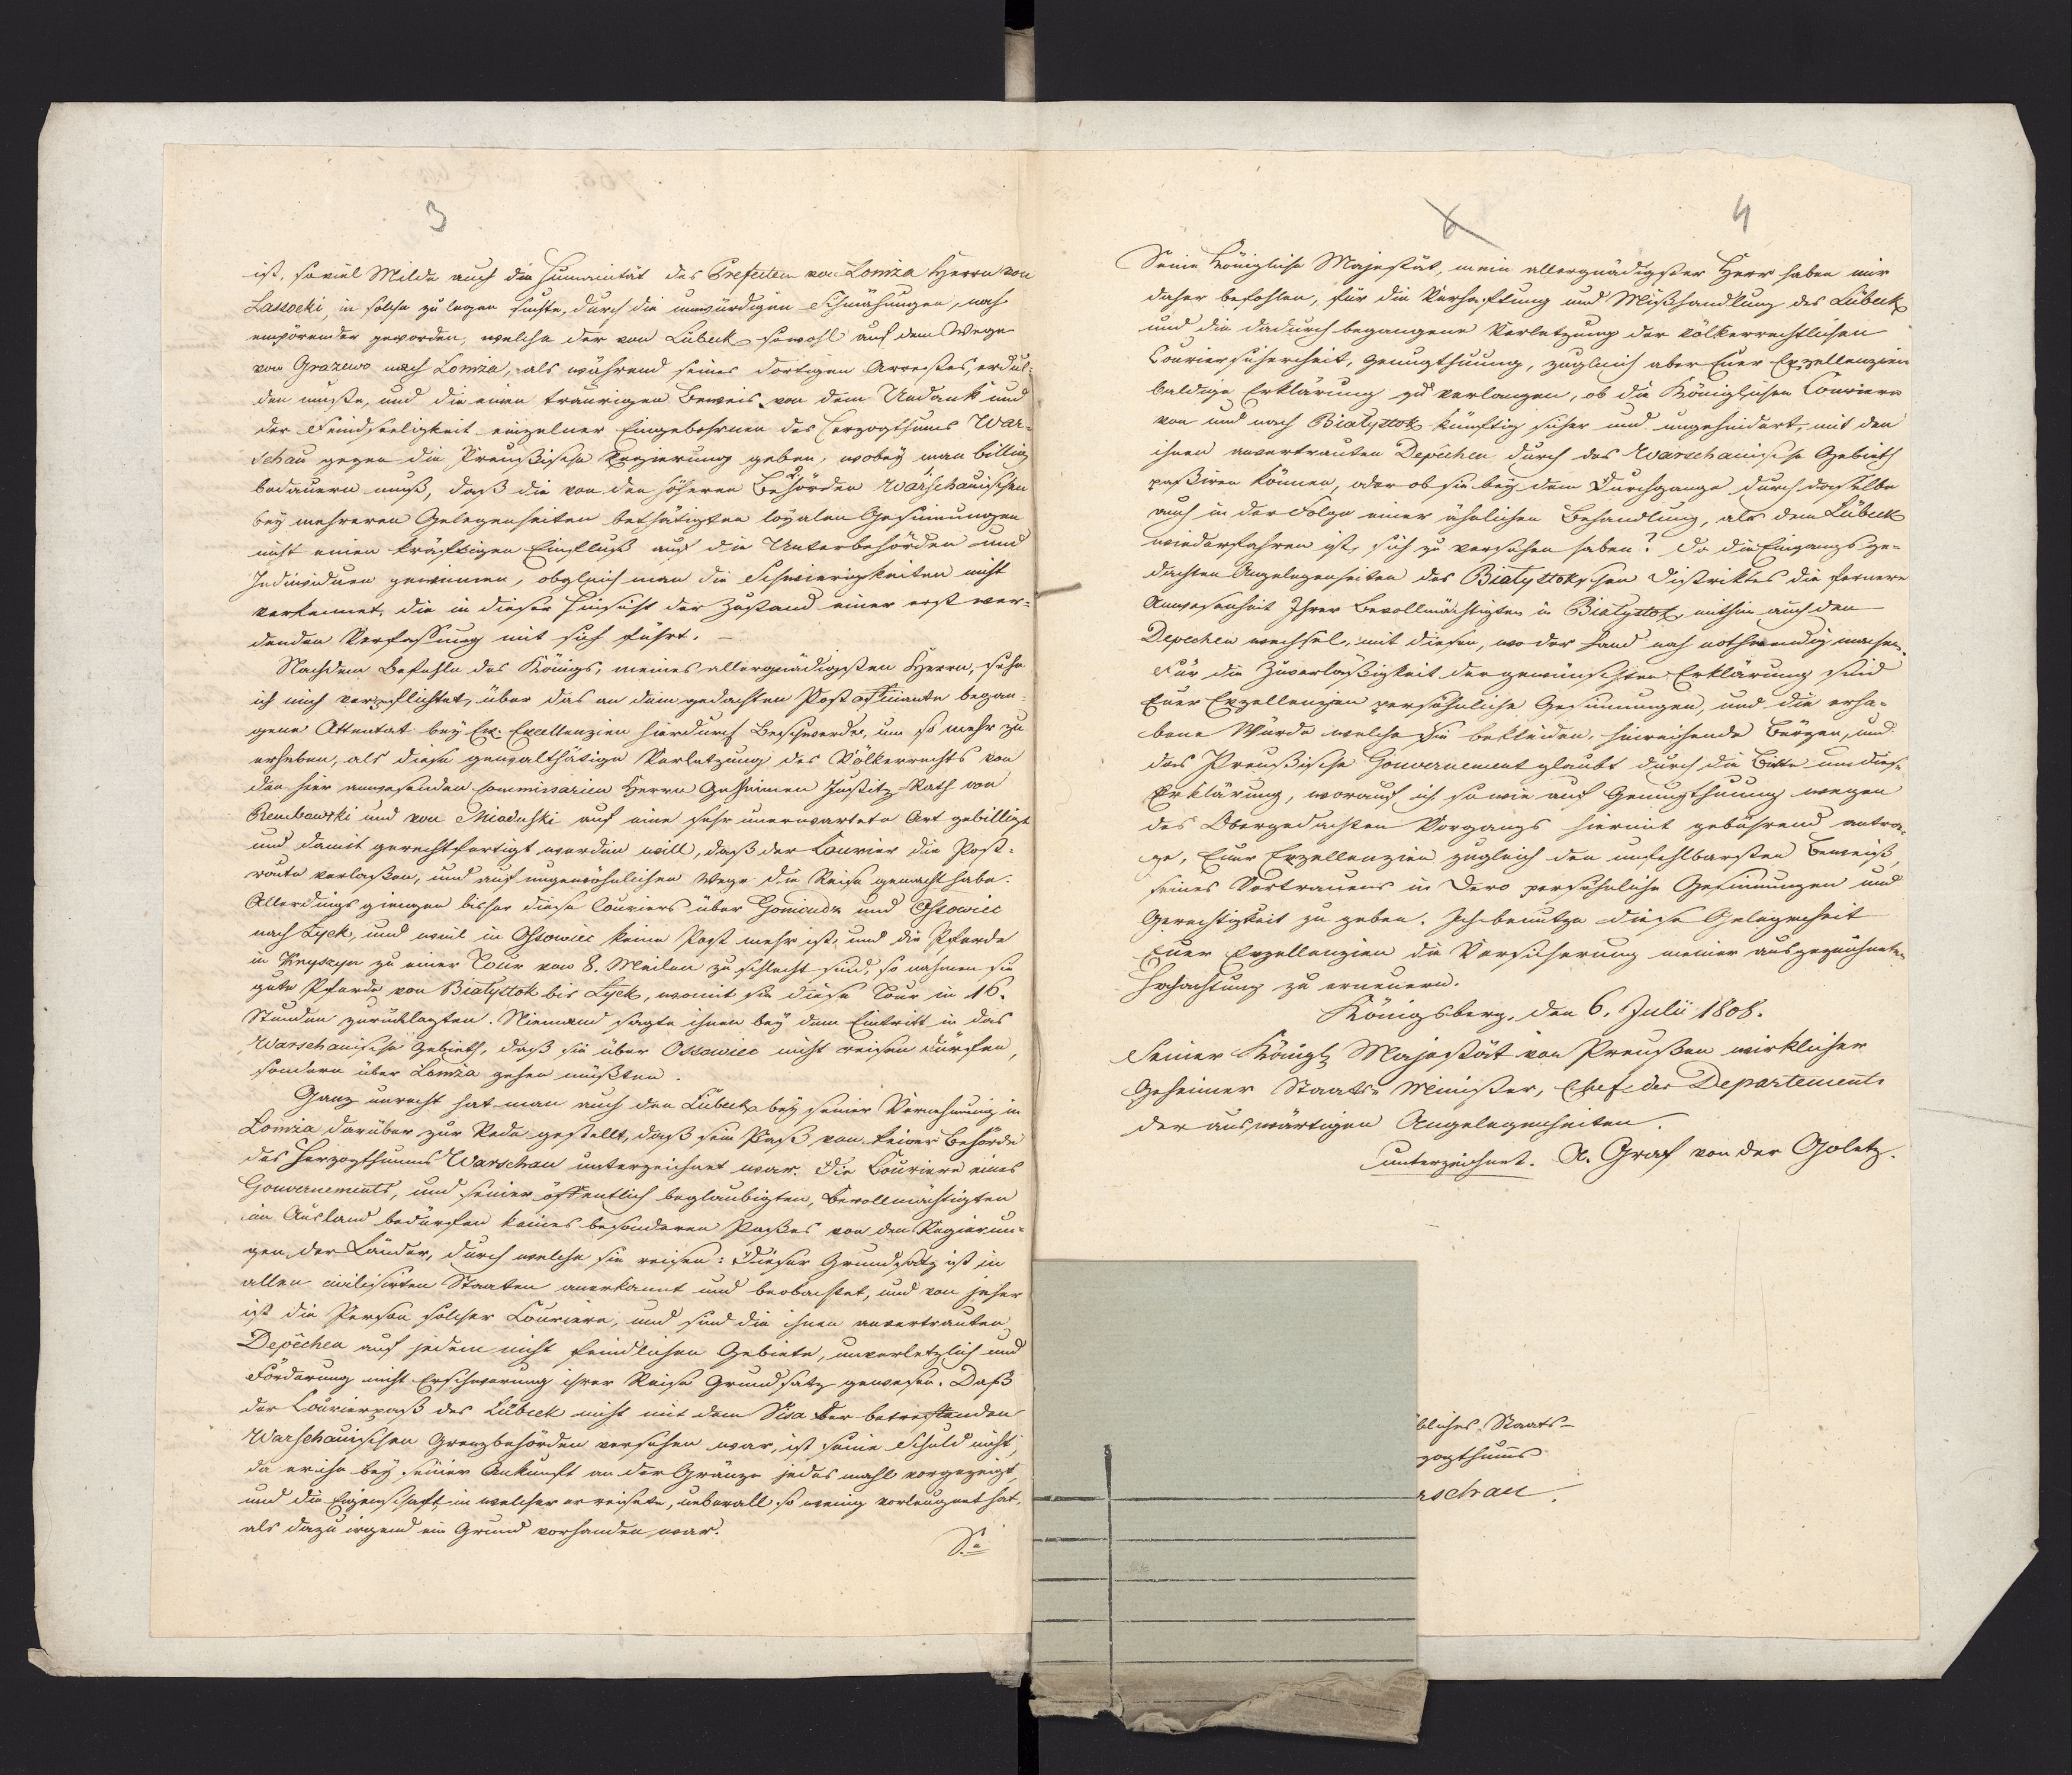 3
ist, soviel Milde auch die Humanität des Prefecten von Lomża Herrn von
Lassocki, in solche zu legen suchte, durch die unwürdigen Schmähungen, noch
empörender geworden, welche der von Lübeck sowohl auf dem Wege
von Grazewo nach Lomża, als während seines dortigen Arrestes, erdul-
den mußte, und die einen traurigen Beweis von dem Undank und
der Feindseeligkeit einzelner Eingebohrnen des Herzogthums War-
schau gegen die Preußische Regierung geben, wobey man billig
bedauern muß, daß die von den höheren Behörden Warschauischen
bey mehreren Gelegenheiten bethätigten loyalen Gesinnungen
nicht einen kräftigen Einfluß auf die Unterbehörden und
Individuen gewinnen, obgleich man die Schwierigkeiten nicht
verkennet, die in dieser Hinsicht der Zustand einer erst wer-
denden Verfassung mit sich führt. —
Nach dem Befehle des Königs, meines allergnädigsten Herrn, sehe
ich mich verpflichtet, über das an dem gedachten Postofficianten began-
gene Attentat bey Ew. Excellenzien hierdurch Beschwerde, um so mehr zu
erheben, als diese gewaltthätige Verletzung des Völkerrechts von
den hier anwesenden Commissarien Herrn Geheimen Justitz-Rath von
Rembowski und von Miaduski auf eine sehr unerwartete Art gebilligt
und damit gerechtfertigt werden will, daß der Courier die Post-
route verlaßen, und auf ungewöhnlichen Wege die Reise gemacht habe.
Allerdings giengen bisher diese Couriers über Goniondz und Ossowiec
nach Lyck, und weil in Ossowiec keine Post mehr ist, und die Pferde
in Knyszyn zu einer Tour von 8. Meilen zu schlecht sind, so nahmen sie
gute Pferde von Bialystok bis Lyck, womit sie diese Tour in 16.
Stunden zurücklegten. Niemand sagte ihnen bey dem Eintritt in das
Warschauische Gebieth, daß sie über Ossowiec nicht reisen dürfen,
sondern über Lomża gehen müßten.
Ganz unrecht hat man auch den Lübeck bey seiner Vernehmung in
Lomża darüber zur Rede gestellt, daß sein Paß, von keiner Behörde
des Herzogthums Warschau unterzeichnet war. Die Couriere eines
Gouvernements, und seiner öffentlich beglaubigten, Bevollmächtigten
im Ausland bedürfen keines besonderen Paßes von den Regierun-
gen der Länder, durch welche sie reisen: Dieser Grundsatz ist in
allen civilisirten Staaten anerkannt und beobachtet, und von jeher
ist die Person solcher Couriere, und sind die ihnen anvertrauten
Depêchen auf jedem nicht feindlichen Gebiete, unverletzlich und
Förderung nicht Erschwerung ihrer Reise Grundsatz gewesen. Daß
der Courierpaß des Lübeck nicht mit dem Visa der betreffenden
Warschauischen Grenzbehörden versehen war, ist seine Schuld nicht,
da er ihn bey seiner Ankunft an der Gränze jedes mahl vorgezeigt,
und die Eigenschaft in welcher er reisete, ueberall so wenig verleugnet hat,
als dazu irgend ein Grund vorhanden war.
Se
6
4
Seine Königliche Majestät, mein allergnädigster Herr haben mir
daher befohlen, für die Verhaftung und Mißhandlung des Lübeck
und die dadurch begangene Verletzung der völkerrechtlichen
Couriersicherheit, Genugthuung, zugleich aber Euer Exzellenzien
baldige Erklärung zu verlangen, ob die Königlichen Couriere
von und nach Bialystok künftig sicher und ungehindert, mit den
ihnen anvertrauten Depêchen durch das Warschauische Gebieth
paßiren können, oder ob sie bey dem Durchgange durch dasselbe
auch in der Folge einer ähnlichen Behandlung, als dem Lübeck
wiederfahren ist, sich zu versehen haben? da die Eingangs ge-
dachten Angelegenheiten des Bialystokschen Distriktes die fernere
Anwesenheit Ihrer Bevollmächtigten in Bialystok, mithin auch den
Depechen wechsel, mit diesen, vor der Hand noch nothwendig machen.
Für die Zuverläßigkeit der gewünschten Erklärung sind
Euer Exzellenzien persöhnliche Gesinnungen, und die erha-
bene Würde welche Sie bekleiden, hinreichende Bürgen, und
das Preußische Gouvernement glaubt durch die Bitte um diese
Erklärung, worauf ich so wie auf Genugthuung wegen
des Obergedachten Vorgangs hiermit gebührend antra-
ge, Euer Exzellenzien zugleich den unfehlbarsten Beweiß
seines Vertrauens in Dero persöhnliche Gesinnungen und
Gerechtigkeit zu geben. Ich benutze diese Gelegenheit
Euer Exzellenzien die Versicherung meiner ausgezeichneten
Hochachtung zu erneuern.
Königsberg, den 6. Julii 1808.
Seiner Königl. Majestät von Preußen wirklicher
Geheimer Staats-Minister, Chef des Departements
der auswärtigen Angelegenheiten.
unterzeichnet. A. Graf von der Goletz.
liches Staats-
zogthums
rschau.